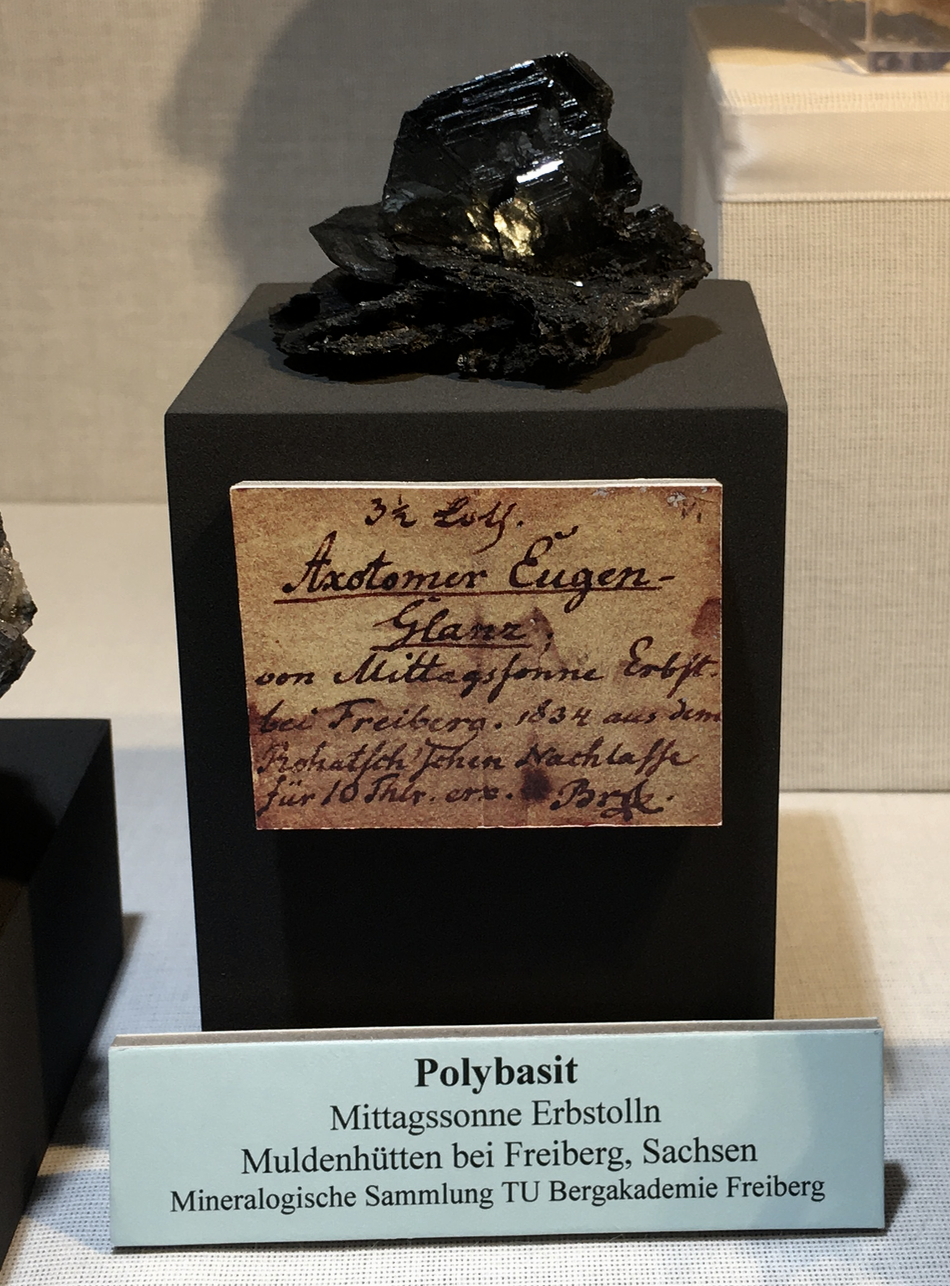 3½ Loth.
Axotomer Eugen-
Glanz,
von Mittagsſonne Erbſt.
bei Freiberg. 1834 aus dem
Nachlaſſe
für 10 Thlr. erx.
Polybasit
Mittagssonne Erbstolln
Muldenhütten bei Freiberg, Sachsen
Mineralogische Sammlung TU Bergakademie Freiberg